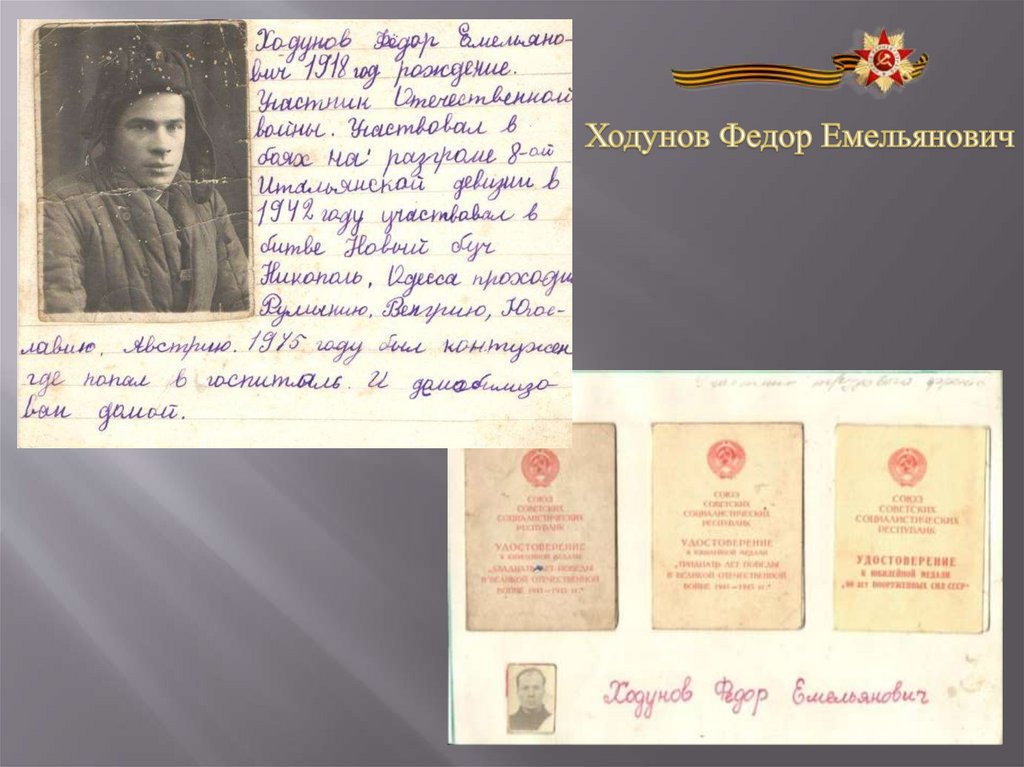 Ходунов Фёдор Емельяно-
вич 1918 год рождение.
Участник Отечественной
войны. Участвовал в
боях на разгроме 8-ой
Итальянской девизии в
1942 году участвовал в
битве Новый буч
Никополь, Одесса проходи
Румынию, Венгрию, Югос-
лавию, Австрию. 1945 году был контужен
где попал в госпиталь. И домобилизо
ван домой.
Ходунов Федор Емельянович
Участник трудового
СОЮЗ
СОВЕТСКИХ
СОЦИАЛИСТИЧЕСКИХ
РЕСПУБЛИК
УДОСТОВЕРЕНИЕ
К ЮБИЛЕЙНОЙ МЕДАЛИ
„ДВАДЦАТЬ ЛЕТ ПОБЕДЫ
В ВЕЛИКОЙ ОТЕЧЕСТВЕННОЙ
ВОЙНЕ 1941—1945 гг."
СОЮЗ
СОВЕТСКИХ
СОЦИАЛИСТИЧЕСКИХ
РЕСПУБЛИК
УДОСТОВЕРЕНИЕ
К ЮБИЛЕЙНОЙ МЕДАЛИ
„ТРИДЦАТЬ ЛЕТ ПОБЕДЫ
В ВЕЛИКОЙ ОТЕЧЕСТВЕННОЙ
ВОЙНЕ 1941—1945 гг."
СОЮЗ
СОВЕТСКИХ
СОЦИАЛИСТИЧЕСКИХ
РЕСПУБЛИК
УДОСТОВЕРЕНИЕ
К ЮБИЛЕЙНОЙ МЕДАЛИ
„60 ЛЕТ ВООРУЖЕННЫХ СИЛ СССР"
Ходунов Федор Емельянович